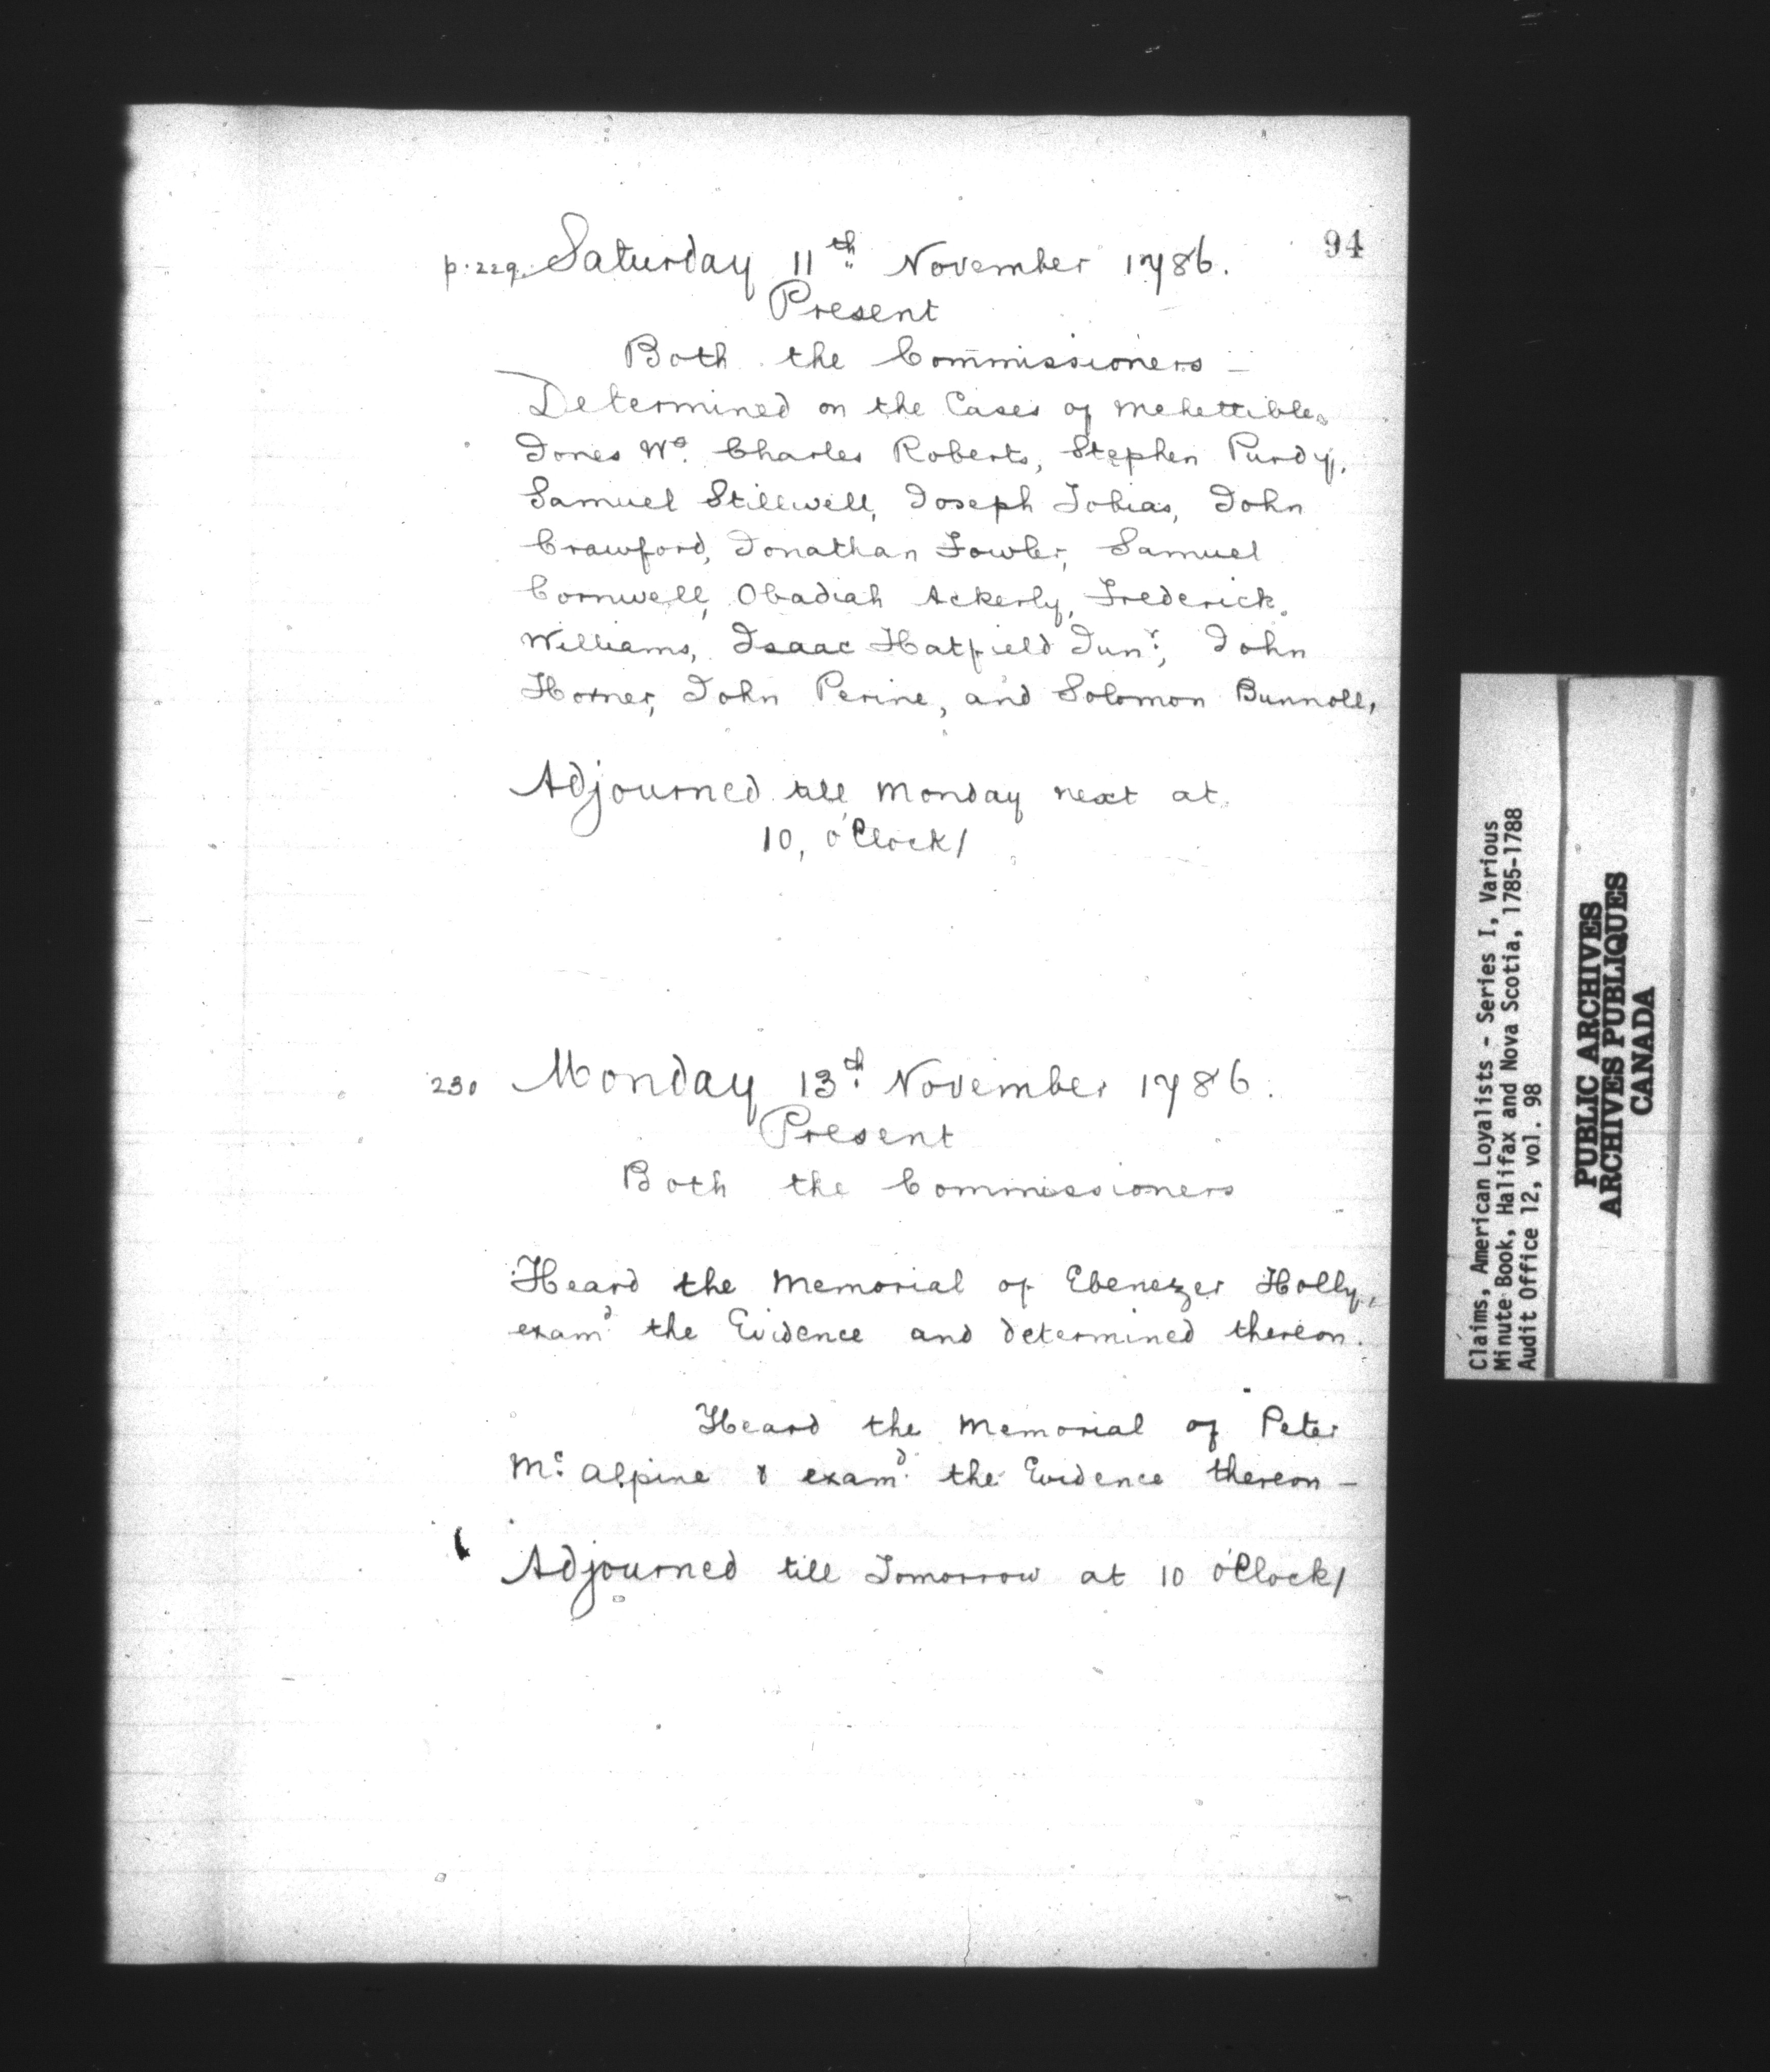 94
p. 229. Saturday 11th November 1786.
Present
Both the Commissioners —
Determined on the Cases of Mehettible
Jones Wo. Charles Roberts, Stephen Purdy,
Samuel Stillwell, Joseph Tobias, John
Crawford, Jonathan Fowler, Samuel
Cornwell, Obadiah Ackerly, Frederick
Williams, Isaac Hatfield Junr, John
Horner, John Perine, and Solomon Bunnoll,
Adjourned till Monday next at
10, o'Clock/
230 Monday 13th November 1786.
Present
Both the Commissioners
Heard the Memorial of Ebenezer Holly,
examd the Evidence and determined thereon.
Heard the Memorial of Peter
Mc Alpine & examd the Evidence thereon —
Adjourned till Tomorrow at 10 o'Clock/
Claims, American Loyalists - Series I, Various
Minute Book, Halifax and Nova Scotia, 1785-1788
Audit Office 12, vol. 98
PUBLIC ARCHIVES
ARCHIVES PUBLIQUES
CANADA